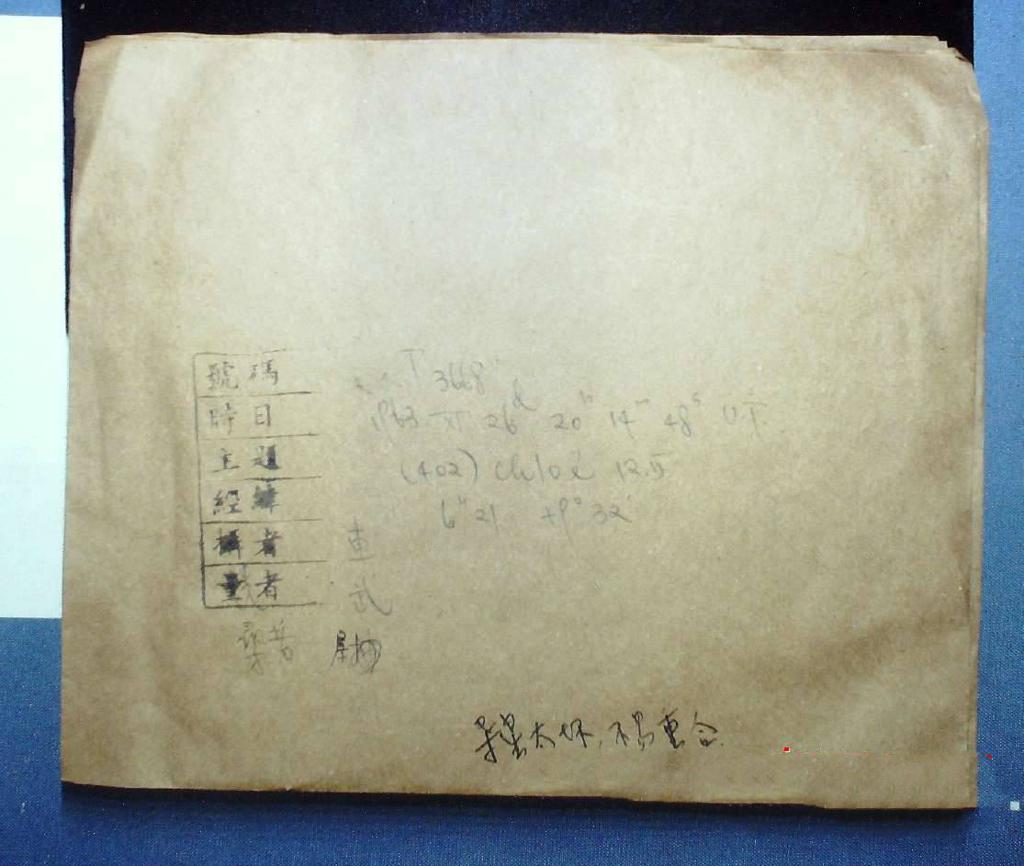 號碼 T 3668
時日 1963 XI 26ᵈ 20ʰ 14ᵐ 48ˢ U.T.
主題 (402) Chloë 12.5
經緯 6ʰ21 +9° 32'
攝者 車
量者 武
尋者
导星太坏,不易重合